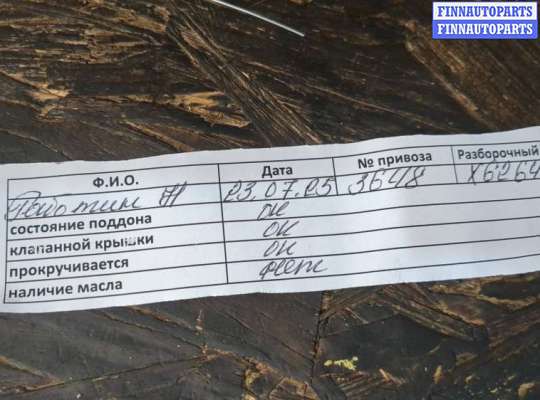 FINNAUTOPARTS
FINNAUTOPARTS
Ф.И.О. Дата № привоза Разборочный
23.07.25 3648 X6264
состояние поддона ок
клапанной крышки ок
прокручивается ок
наличие масла